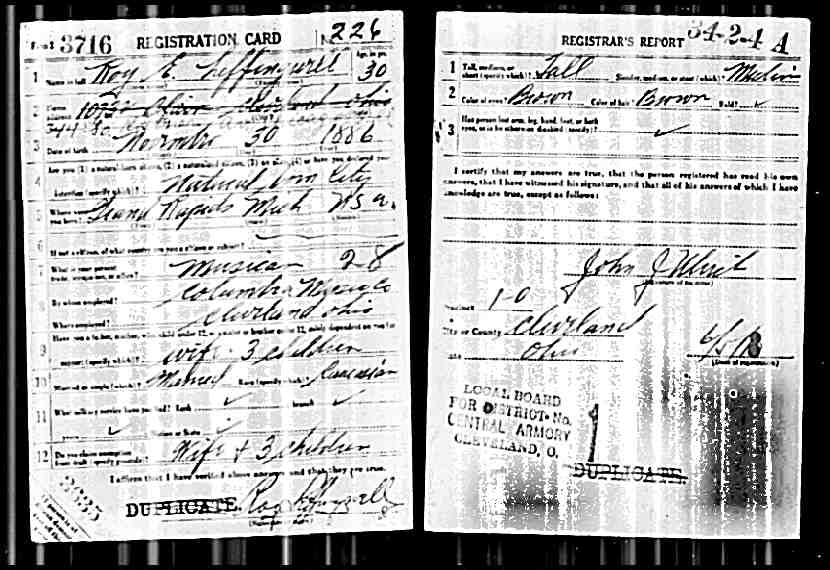 Form 1 3716 REGISTRATION CARD No. 226
1 Name in full Roy E. Leffingwell Age, in yrs. 30
2 Home address Ohio
3 Date of birth November 30 1886
4 Are you (1) a natural-born citizen, (2) a naturalized citizen, (3) an alien, (4) or have you declared your
intention (specify which)? Natural born
5 Where were you born? Grand Rapids Mich U.S.A.
6 If not a citizen, of what country are you a citizen or subject?
7 What is your present trade, occupation, or office? Musician 28
8 By whom employed? Columbia
Where employed? Cleveland Ohio
9 Have you a father, mother, wife, child under 12, or a sister or brother under 12, solely dependent on you for
support (specify which)? Wife 3 children
10 Married or single (which)? Married Race (specify which)? Caucasian
11 What military service have you had? Rank ✓ branch ✓
years ✓ Nation or State ✓
12 Do you claim exemption from draft (specify grounds)? Wife & 3 children
I affirm that I have verified above answers and that they are true.
DUPLICATE. Roy Leffingwell
34-2-4 A
REGISTRAR'S REPORT
1 Tall, medium, or short (specify which)? Tall Slender, medium, or stout (which)? Medium
2 Color of eyes? Brown Color of hair? Brown Bald? ✓
3 Has person lost arm, leg, hand, foot, or both
eyes, or is he otherwise disabled (specify)? ✓
I certify that my answers are true, that the person registered has read his own
answers, that I have witnessed his signature, and that all of his answers of which I have
knowledge are true, except as follows:
John J
(Signature of registrar)
Precinct 10
City or County Cleveland
State Ohio
(Date of registration)
LOCAL BOARD
FOR DISTRICT No. 1
CENTRAL ARMORY
CLEVELAND, O.
DUPLICATE.